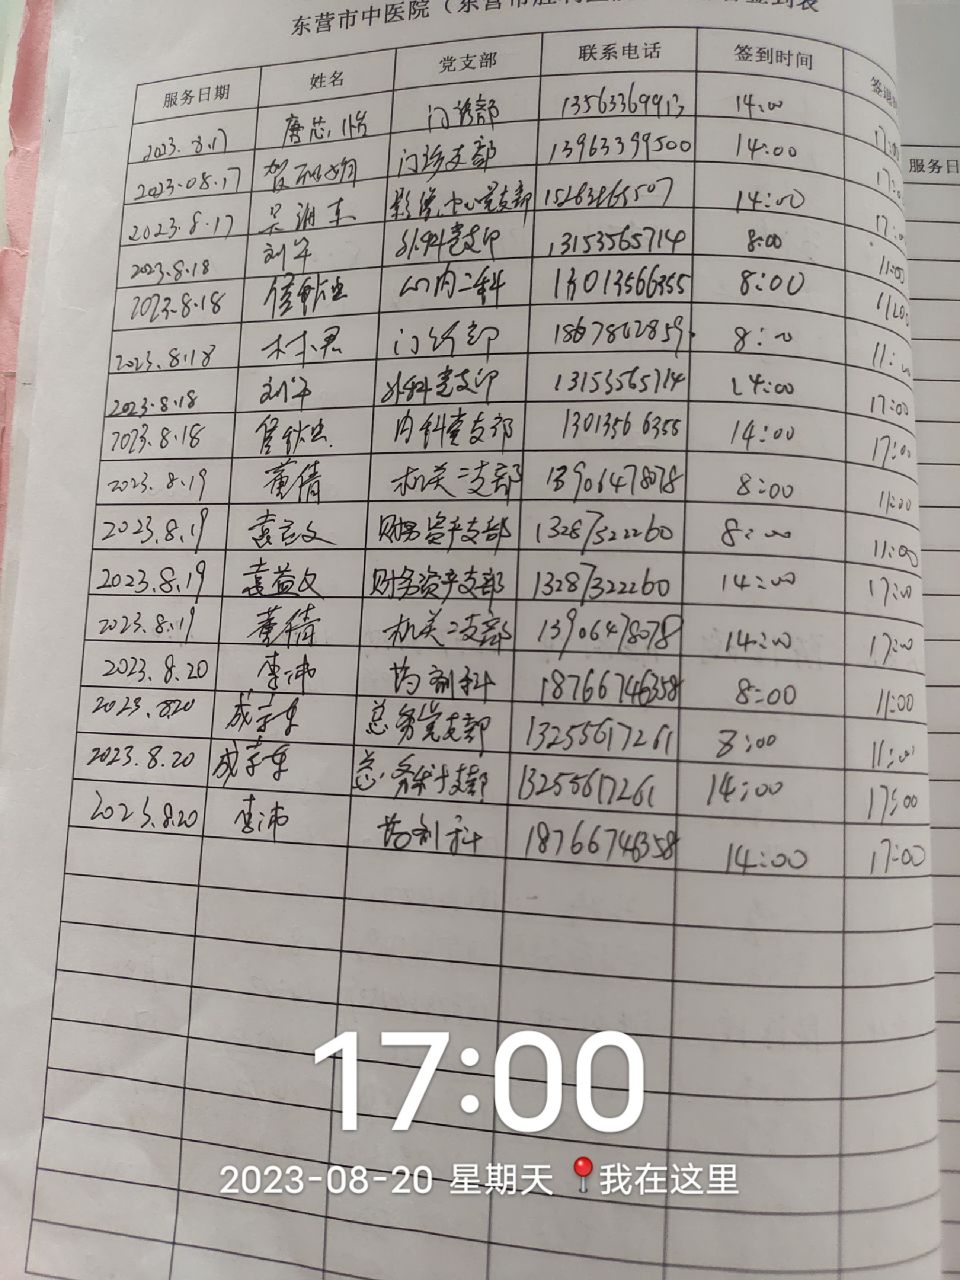 东营市中医院（东营市胜利医
服务日期 姓名 党支部 联系电话 签到时间 签退
2023.8.17 唐芯怡 门诊部 13563369913 14:00 17:00
2023.08.17 门诊支部 13963399500 14:00 17:
2023.8.17 吴湘东 影像中心党支部 14:00 17:00
2023.8.18 刘军 外科党支部 13153565714 8:00 11:00
2023.8.18 内二科 13013566355 8:00 11:00
2023.8.18 林君 门诊部 8:00 11:
2023.8.18 刘军 外科党支部 13153565714 14:00 17:00
2023.8.18 内科党支部 13013566355 14:00 17:00
2023.8.19 董倩 机关二支部 13906478078 8:00 11:00
2023.8.19 袁益文 财务资产支部 13287322260 8:00 11:00
2023.8.19 袁益文 财务资产支部 13287322260 14:00 17:00
2023.8.19 董倩 机关二支部 13906478078 14:00 17:00
2023.8.20 李沛 药剂科 18766746358 8:00 11:00
2023.8.20 总务党支部 13255617261 8:00 11:00
2023.8.20 支部 13255617261 14:00 17:00
2023.8.20 李沛 药剂科 18766746358 14:00 17:00
服务日
17:00
2023-08-20 星期天 📍我在这里